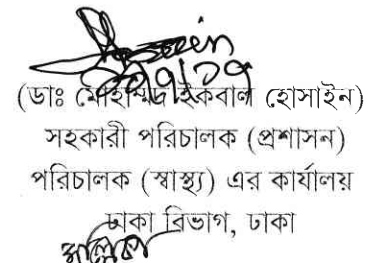 (ডাঃ মোহাম্মদ ইকবাল হোসাইন)
সহকারী পরিচালক (প্রশাসন)
পরিচালক (স্বাস্থ্য) এর কার্যালয়
ঢাকা বিভাগ, ঢাকা